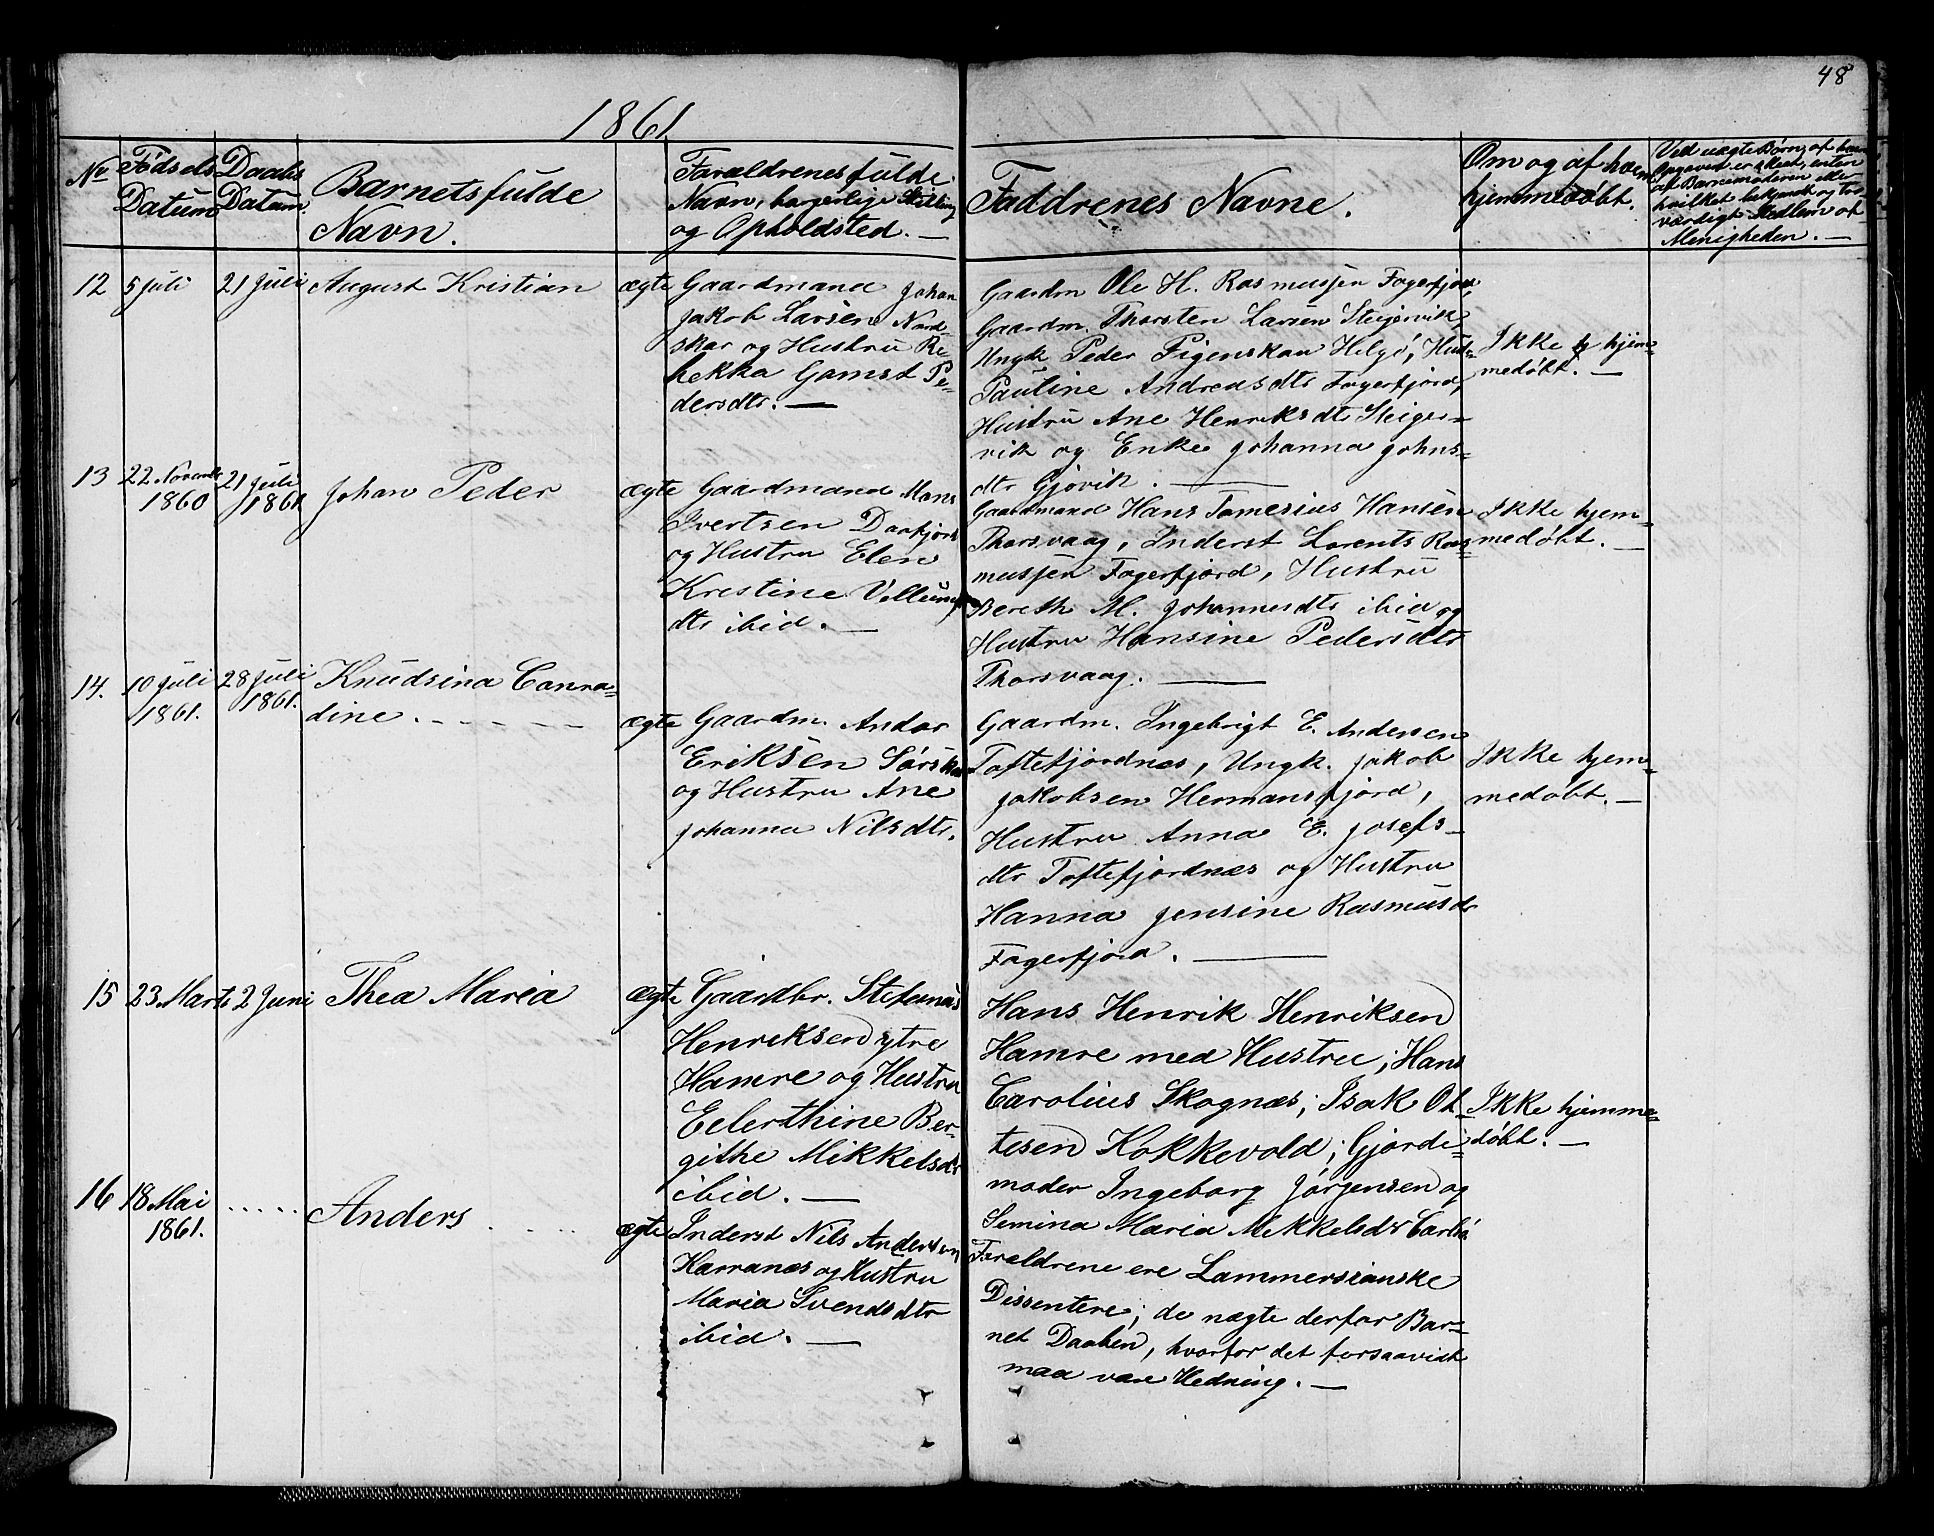 48
1861
No Fødsels Datum
Daabs Datum.
Barnets fulde
Navn.
Forældrenes fulde
Navn, borgerlige Stilling
og Opholdsted. —
Faddrenes Navne.
Om og af hvem
hjemmedøbt.
Ved uægte Børn, af hvem
Opgavet er skeet, enten
af Barnemoderen eller
hvilket bekjendt og tro-
værdigt Medlem af
Menigheden. —
12 5 Juli 21 Juli August Kristian ægte
Gaardmand Johan
Jakob Larsen Nord-
skar og Hustru Re-
bekka Gamst Pe-
dersdtr. —
Gaardm Ole H. Rasmussen Fagerfjord,
Gaardm. Thorsten Larsen Steigervik,
Ungk Peder Figenskau Helgø, Hust-
Pauline Andreasdtr Fagerfjord,
Hustru Ane Henriksdtr Steiger-
vik og Enke Johanna Johns-
dtr Gjøvik. —
Ikke hjem-
medøbt. —
13 22 Novembr 1860 21 Juli 1861 Johan Peder ægte
Gaardmand Mons
Ivertsen Dorfjord
og Hustru Elen
Kristine Vellums
dtr ibid. —
Gaardmand Hans Tomesius Hansen
Thorsvaag, Inderst Lorents Ras-
mussen Fagerfjord, Hustru
Bereth M. Johannesdtr ibid og
Hustru Hansine Pedersdtr
Thorsvaag. —
Ikke hjem-
medøbt. —
14. 10 Juli 1861. 28 Juli 1861. Knudsina Conra-
dine. - - - - - ægte
Gaardm. Andor
Eriksen Sørskar
og Hustru Ane
Johanna Nilsdtr.
Gaardm. Ingebrigt E. Andersen
Toftefjordnæs, Ungk. Jakob
Jakobsen Hermansfjord,
Hustru Anna E. Josefs-
dtr Toftefjordnæs og Hustru
Hanna Jensine Rasmusdr
Fagerfjord. —
Ikke hjem-
medøbt. —
15 23 Marts 2 Juni Thea Maria ægte
Gaardbr. Stefanus
Henriksen ytre
Hamre og Hustru
Eelerthine Ber-
githe Mikkelsdr
ibid. —
Hans Henrik Henriksen
Hamre med Hustru; Hans
Carolius Skognæs; Isak Ot-
tesen Kokkevold; Gjorde-
moder Ingeborg Jørgensen og
Semina Maria Mekkelsdr Carlsø
Ikke hjemme-
døbt. —
16 18 Mai 1861. . . . . . Anders . . . . . ægte
Inderst Nils Andersen
Karranæs og Hustru
Maria Svendsdtr
ibid. —
Forældrene ere Lammersianske
Dissentere; de nægte derfor Bar-
net Daaben, hvorfor det forsaavidt
maa være Hedning. —